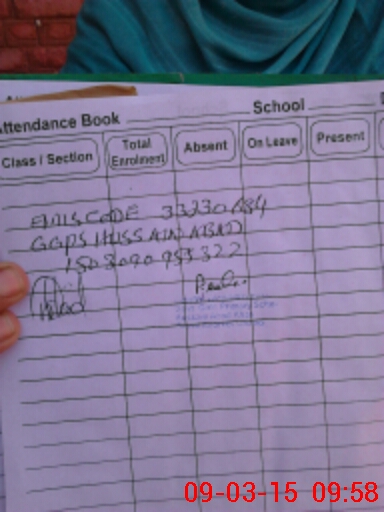 Attendance Book School
Class / Section Total Enrolment Absent On Leave Present
EMIS CODE 33230684
GGPS HUSSAINABAD
1503090953322
09-03-15 09:58